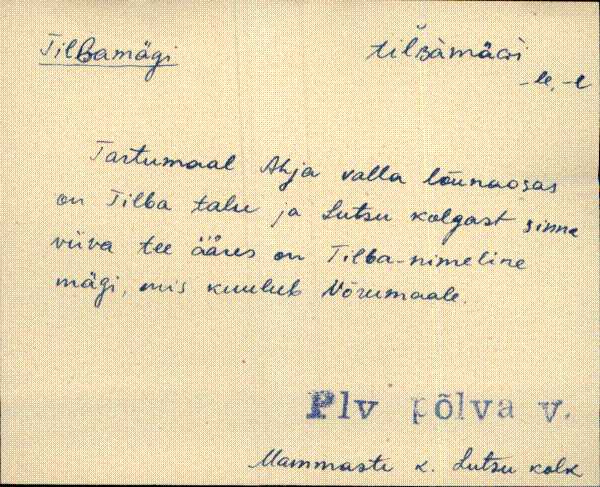 Tilbamägi tilbamägi
-le, -l
Tartumaal Ahja valla lõunaosas
on Tilba talu ja Lutsu kolgast sinna
viiva tee ääres on Tilba-nimeline
mägi, mis kuulub Võrumaale.
Plv põlva v.
Mammaste k. Lutsu kolk